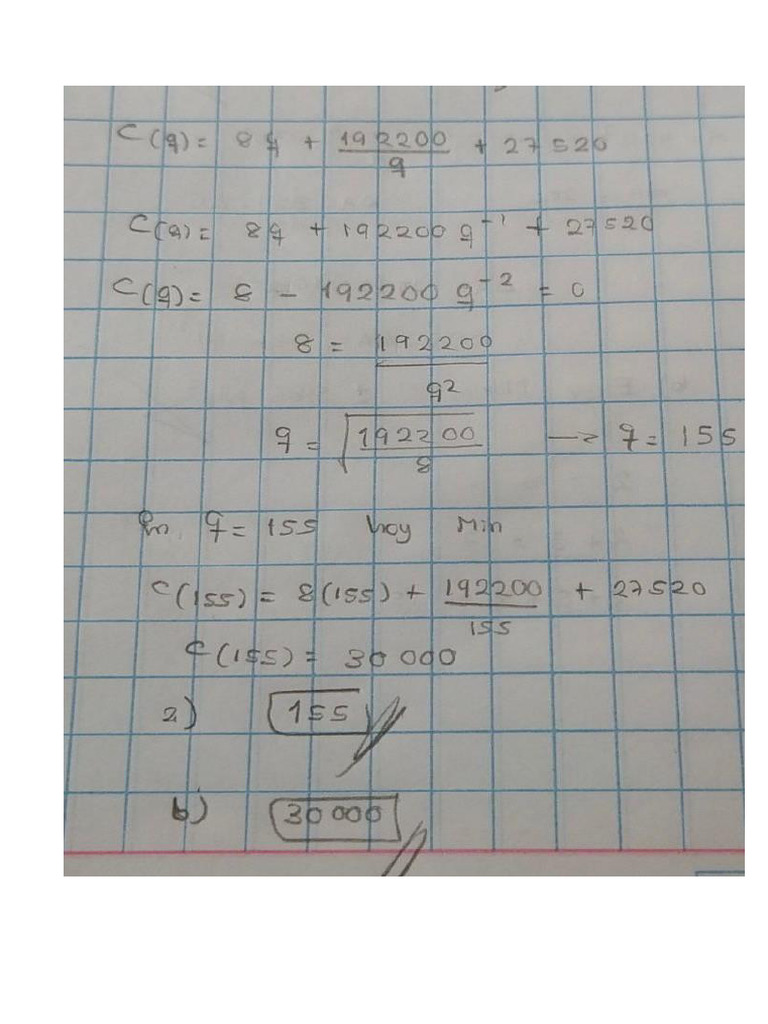 C(q) = 8q + 192200/q + 27520
C(q) = 8q + 192200 q⁻¹ + 27520
C(q) = 8 - 192200 q⁻² = 0
8 = 192200/q²
q = √(192200/8) → q = 155
En q = 155 hay Min
C(155) = 8(155) + 192200/155 + 27520
C(155) = 30 000
a) 155
b) 30 000